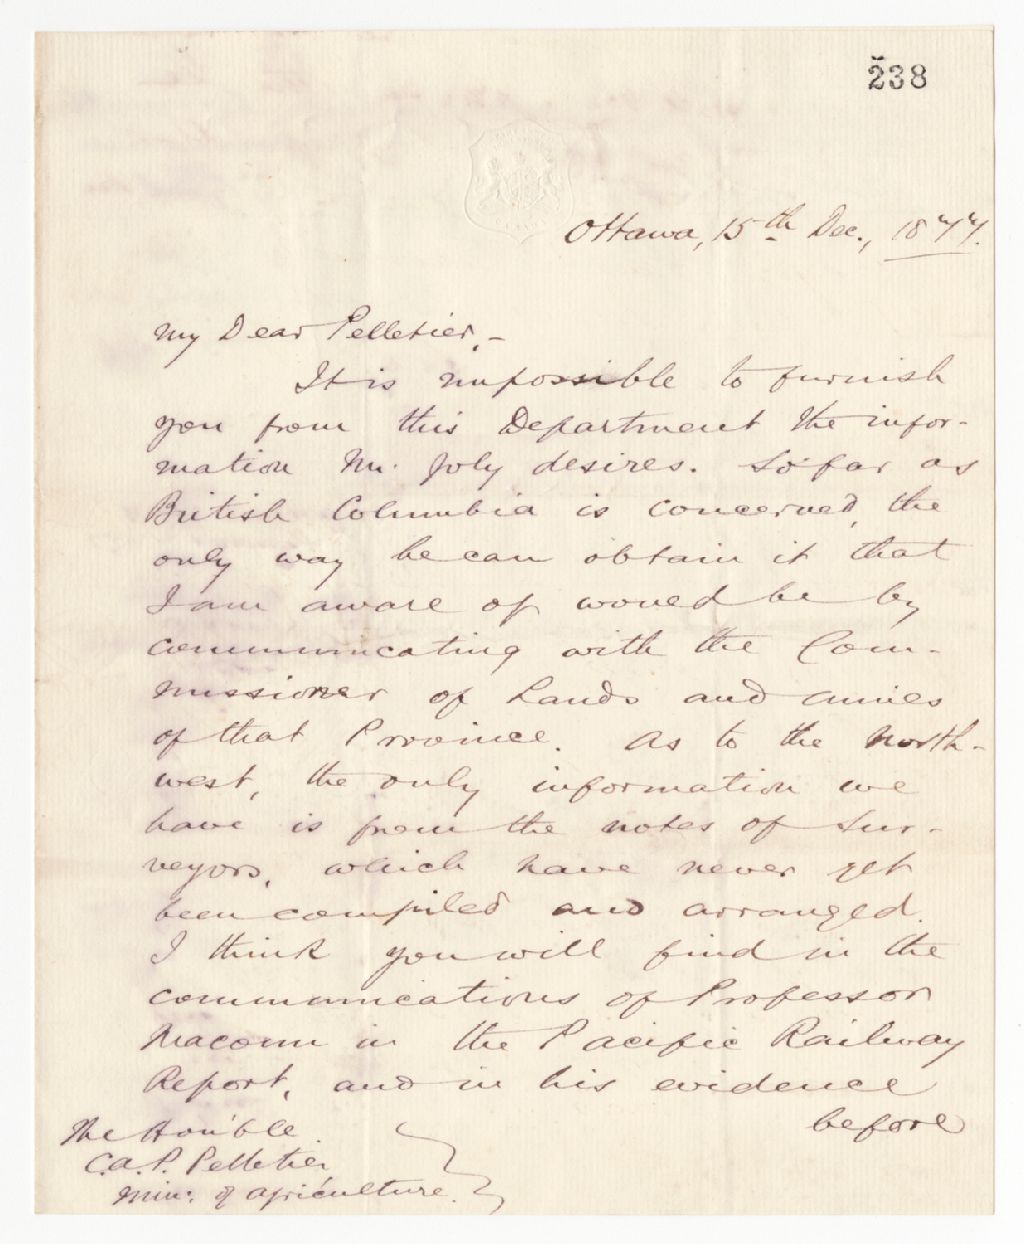 238
Ottawa, 15th Dec., 1877.
My Dear Pelletier,–
It is impossible to furnish
you from this Department the infor-
mation Mr. Joly desires. So far as
British Columbia is concerned, the
only way he can obtain it that
I am aware of would be by
communicating with the Com-
missioner of Lands and Mines
of that Province. As to the North-
west, the only information we
have is from the notes of Sur-
veyors, which have never yet
been compiled and arranged.
I think you will find in the
communications of Professor
Macoun in the Pacific Railway
Report, and in his evidence
before
The Hon'ble
C.A.P. Pelletier,
Min: of Agriculture.